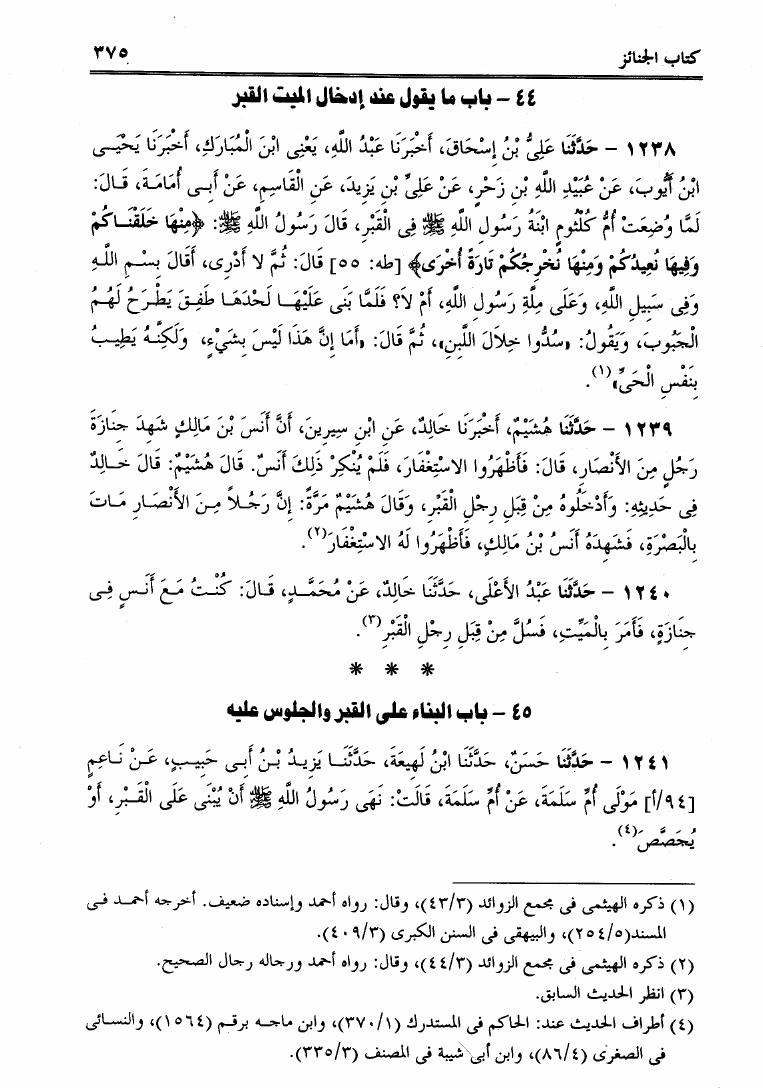 كتاب الجنائز ٣٧٥
٤٤ – باب ما يقول عند إدخال الميت القبر
١٢٣٨ – حَدَّثَنَا عَلِىُّ بْنُ إِسْحَاقَ، أَخْبَرَنَا عَبْدُ اللَّهِ، يَعْنِى ابْنَ الْمُبَارَكِ، أَخْبَرَنَا يَحْيَـى
ابْنُ أَيُّوبَ، عَنْ عُبَيْدِ اللَّهِ بْنِ زَحْرٍ، عَنْ عَلِىِّ بْنِ يَزِيدَ، عَنِ الْقَاسِمِ، عَنْ أَبِـى أُمَامَةَ، قَـالَ:
لَمَّا وُضِعَتْ أُمُّ كُلْثُومٍ ابْنَةُ رَسُولِ اللَّهِ ﷺ فِى الْقَبْرِ، قَالَ رَسُولُ اللَّهِ ﷺ: ﴿مِنْهَا خَلَقْنَـاكُمْ
وَفِيهَا نُعِيدُكُمْ وَمِنْهَا نُخْرِجُكُمْ تَارَةً أُخْرَى﴾ [طه: ٥٥] قَالَ: ثُمَّ لا أَدْرِى، أَقَالَ بِسْـمِ اللَّـهِ
وَفِى سَبِيلِ اللَّهِ، وَعَلَى مِلَّةِ رَسُولِ اللَّهِ، أَمْ لاَ؟ فَلَمَّا بَنَى عَلَيْهَـا لَحْدَهَـا طَفِـقَ يَطْـرَحُ لَهُـمُ
الْجَبُوبَ، وَيَقُولُ: «سُدُّوا خِلاَلَ اللَّبِنِ»، ثُمَّ قَالَ: «أَمَا إِنَّ هَذَا لَيْسَ بِشَىْءٍ، وَلَكِنَّـهُ يَطِيـبُ
بِنَفْسِ الْحَىِّ»(١).
١٢٣٩ – حَدَّثَنَا هُشَيْمٌ، أَخْبَرَنَا خَالِدٌ، عَنِ ابْنِ سِيرِينَ، أَنَّ أَنَسَ بْنَ مَالِكٍ شَهِدَ جِنَازَةَ
رَجُلٍ مِنَ الأَنْصَارِ، قَالَ: فَأَظْهَرُوا الاسْتِغْفَارَ، فَلَمْ يُنْكِرْ ذَلِكَ أَنَسٌ. قَالَ هُشَيْمٌ: قَالَ خَـالِدٌ
فِى حَدِيثِهِ: وَأَدْخَلُوهُ مِنْ قِبَلِ رِجْلِ الْقَبْرِ، وَقَالَ هُشَيْمٌ مَرَّةً: إِنَّ رَجُـلاً مِـنَ الأَنْصَـارِ مَـاتَ
بِالْبَصْرَةِ، فَشَهِدَهُ أَنَسُ بْنُ مَالِكٍ، فَأَظْهَرُوا لَهُ الاسْتِغْفَارَ(٢).
١٢٤٠ – حَدَّثَنَا عَبْدُ الأَعْلَى، حَدَّثَنَا خَالِدٌ، عَنْ مُحَمَّـدٍ، قَـالَ: كُنْـتُ مَـعَ أَنَـسٍ فِـى
جِنَازَةٍ، فَأَمَرَ بِالْمَيِّتِ، فَسُلَّ مِنْ قِبَلِ رِجْلِ الْقَبْرِ(٣).
* * *
٤٥ – باب البناء على القبر والجلوس عليه
١٢٤١ – حَدَّثَنَا حَسَنٌ، حَدَّثَنَا ابْنُ لَهِيعَةَ، حَدَّثَنَـا يَزِيـدُ بْـنُ أَبِـى حَبِيـبٍ، عَـنْ نَـاعِمٍ
[٩٤/أ] مَوْلَى أُمِّ سَلَمَةَ، عَنْ أُمِّ سَلَمَةَ، قَالَتْ: نَهَى رَسُولُ اللَّهِ ﷺ أَنْ يُبْنَى عَلَى الْقَـبْرِ، أَوْ
يُجَصَّصَ(٤).
(١) ذكره الهيثمى فى مجمع الزوائد (٤٣/٣)، وقال: رواه أحمد وإسناده ضعيف. أخرجه أحمـد فـى
المسند(٢٥٤/٥)، والبيهقى فى السنن الكبرى (٤٠٩/٣).
(٢) ذكره الهيثمى فى مجمع الزوائد (٤٤/٣)، وقال: رواه أحمد ورجاله رجال الصحيح.
(٣) انظر الحديث السابق.
(٤) أطراف الحديث عند: الحاكم فى المستدرك (٣٧٠/١)، وابن ماجـه برقـم (١٥٦٤)، والنسـائى
فى الصغرى (٨٦/٤)، وابن أبى شيبة فى المصنف (٣٣٥/٣).